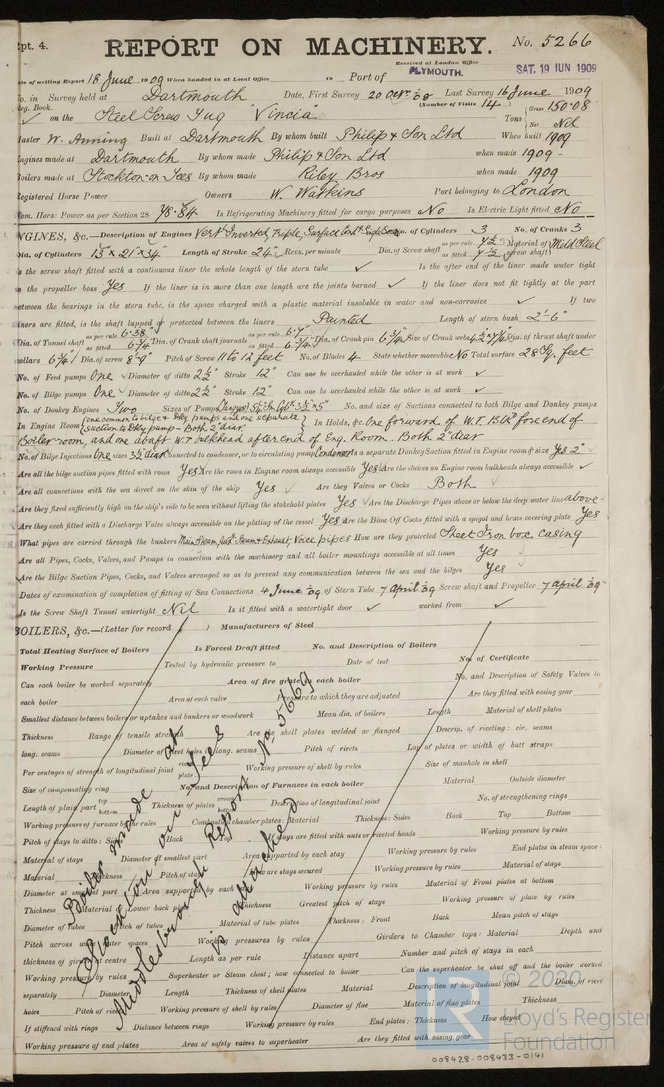 Rpt. 4. REPORT ON MACHINERY. No. 5266
Received at London Office
Date of writing Report 18 June 1909 When handed in at Local Office 19 Port of PLYMOUTH. SAT. 19 JUN 1909
No. in Survey held at Dartmouth Date, First Survey 20 Octr 08 Last Survey 16 June 1909
Reg. Book. (Number of Visits 14)
on the Steel Screw Tug "Vincia" Tons Gross 150.08 Net Nil
Master W. Anning Built at Dartmouth By whom built Philip & Son Ltd When built 1909
Engines made at Dartmouth By whom made Philip & Son Ltd when made 1909
Boilers made at Stockton-on-Tees By whom made Riley Bros when made 1909
Registered Horse Power Owners W. Watkins Port belonging to London
Nom. Horse Power as per Section 28 78.84 Is Refrigerating Machinery fitted for cargo purposes No Is Electric Light fitted No
ENGINES, &c.—Description of Engines Vert Inverted, Triple, Surface No. of Cylinders 3 No. of Cranks 3
Dia. of Cylinders 13" x 21" x 34" Length of Stroke 24" Revs. per minute Dia. of Screw shaft as per rule as fitted Material of screw shaft Mild Steel
Is the screw shaft fitted with a continuous liner the whole length of the stern tube Is the after end of the liner made water tight
in the propeller boss Yes If the liner is in more than one length are the joints burned If the liner does not fit tightly at the part
between the bearings in the stern tube, is the space charged with a plastic material insoluble in water and non-corrosive If two
liners are fitted, is the shaft lapped or protected between the liners Painted Length of stern bush 2'-6"
Dia. of Tunnel shaft as per rule 6.38 as fitted 6 3/4 Dia. of Crank shaft journals as per rule 6.7" as fitted 6 3/4" Dia. of Crank pin 6 3/4" Size of Crank webs Dia. of thrust shaft under
collars 6 3/4" Dia. of screw 8'-9" Pitch of Screw 11 to 12 feet No. of Blades 4 State whether moceable No Total surface 28 Sq. feet
No. of Feed pumps One Diameter of ditto 2 1/2" Stroke 12" Can one be overhauled while the other is at work
No. of Bilge pumps One Diameter of ditto 2 1/2" Stroke 12" Can one be overhauled while the other is at work
No. of Donkey Engines Two Sizes of Pumps No. and size of Suctions connected to both Bilge and Donkey pumps
In Engine Room one common to bilge & dky pumps and one separate suction to dky pump - Both 2" diar In Holds, &c. One forward of W.T. Blkd fore end of
Boiler room, and one abaft W.T bulkhead after end of Eng. Room. Both 2" diar
No. of Bilge Injections One sizes 3 1/2" diar Connected to condenser, or to circulating pump Condenser Is a separate Donkey Suction fitted in Engine room & size Yes 2"
Are all the bilge suction pipes fitted with roses Yes Are the roses in Engine room always accessible Yes Are the sluices on Engine room bulkheads always accessible
Are all connections with the sea direct on the skin of the ship Yes Are they Valves or Cocks Both
Are they fixed sufficiently high on the ship's side to be seen without lifting the stokehold plates Yes Are the Discharge Pipes above or below the deep water line above
Are they each fitted with a Discharge Valve always accessible on the plating of the vessel Yes Are the Blow Off Cocks fitted with a spigot and brass covering plate Yes
What pipes are carried through the bunkers Main Steam, Steam & Exhaust, Voice pipes How are they protected Sheet Iron box casing
Are all Pipes, Cocks, Valves, and Pumps in connection with the machinery and all boiler mountings accessible at all times Yes
Are the Bilge Suction Pipes, Cocks, and Valves arranged so as to prevent any communication between the sea and the bilges Yes
Dates of examination of completion of fitting of Sea Connections 4 June 09 of Stern Tube 7 April 09 Screw shaft and Propeller 7 April 09
Is the Screw Shaft Tunnel watertight Nil Is it fitted with a watertight door worked from
BOILERS, &c.—(Letter for record ) Manufacturers of Steel
Total Heating Surface of Boilers Is Forced Draft fitted No. and Description of Boilers
Working Pressure Tested by hydraulic pressure to Date of test No. of Certificate
Can each boiler be worked separately Area of fire grate in each boiler No. and Description of Safety Valves to
each boiler Area of each valve Pressure to which they are adjusted Are they fitted with easing gear
Smallest distance between boilers or uptakes and bunkers or woodwork Mean dia. of boilers Length Material of shell plates
Thickness Range of tensile strength Are the shell plates welded or flanged Descrip. of riveting: cir. seams
long. seams Diameter of rivet holes in long. seams Pitch of rivets Lap of plates or width of butt straps
Per centages of strength of longitudinal joint rivets plate Working pressure of shell by rules Size of manhole in shell
Size of compensating ring No. and Description of Furnaces in each boiler Material Outside diameter
Length of plain part top bottom Thickness of plates crown bottom Description of longitudinal joint No. of strengthening rings
Working pressure of furnace by the rules Combustion chamber plates: Material Thickness: Sides Back Top Bottom
Pitch of stays to ditto: Sides Back Top If stays are fitted with nuts or riveted heads Working pressure by rules
Material of stays Diameter at smallest part Area supported by each stay Working pressure by rules End plates in steam space:
Material Thickness Pitch of stays How are stays secured Working pressure by rules Material of stays
Diameter at smallest part Area supported by each stay Working pressure by rules Material of Front plates at bottom
Thickness Material of Lower back plate Thickness Greatest pitch of stays Working pressure of plate by rules
Diameter of Tubes Pitch of tubes Material of tube plates Thickness: Front Back Mean pitch of stays
Pitch across wide water spaces Working pressures by rules Girders to Chamber tops: Material Depth and
thickness of girder at centre Length as per rule Distance apart Number and pitch of stays in each
Working pressure by rules Superheater or Steam chest; how connected to boiler Can the superheater be shut off and the boiler worked
separately Diameter Length Thickness of shell plates Material Description of longitudinal joint Diam. of rivet
holes Pitch of rivets Working pressure of shell by rules Diameter of flue Material of flue plates Thickness
If stiffened with rings Distance between rings Working pressure by rules End plates: Thickness How stayed
Working pressure of end plates Area of safety valves to superheater Are they fitted with easing gear
Boiler made at
Stockton on Tees
Middlesborough Report No 5669
is attached
© 2020
Lloyd's Register
Foundation
008428-008433-0141